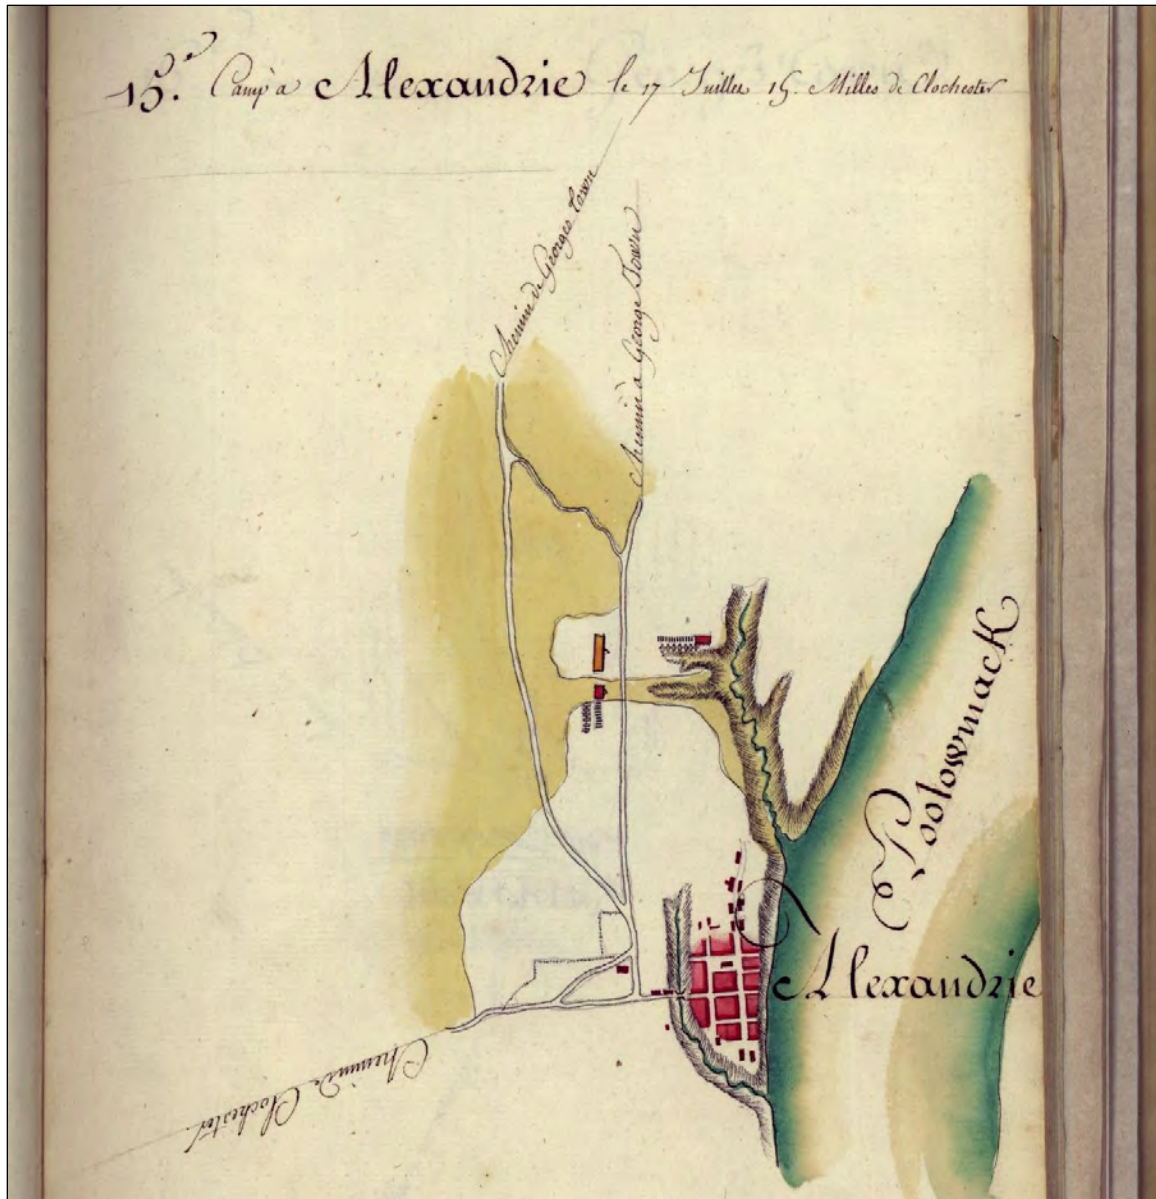 15.e Camp a Alexandrie le 17 Juillet 15. Milles de Clochester
Chemin de Georges Town
Chemin a George Town
Pootowmack
Alexandrie
Chemin de Clochester